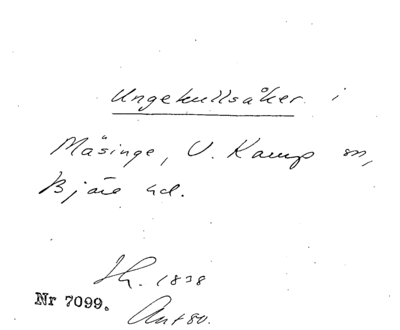 Ungekullsåker i
Mäsinge, V. Karup sn,
Bjäre hd.
Sk. 1838
Nr 7099.
Ant 80.